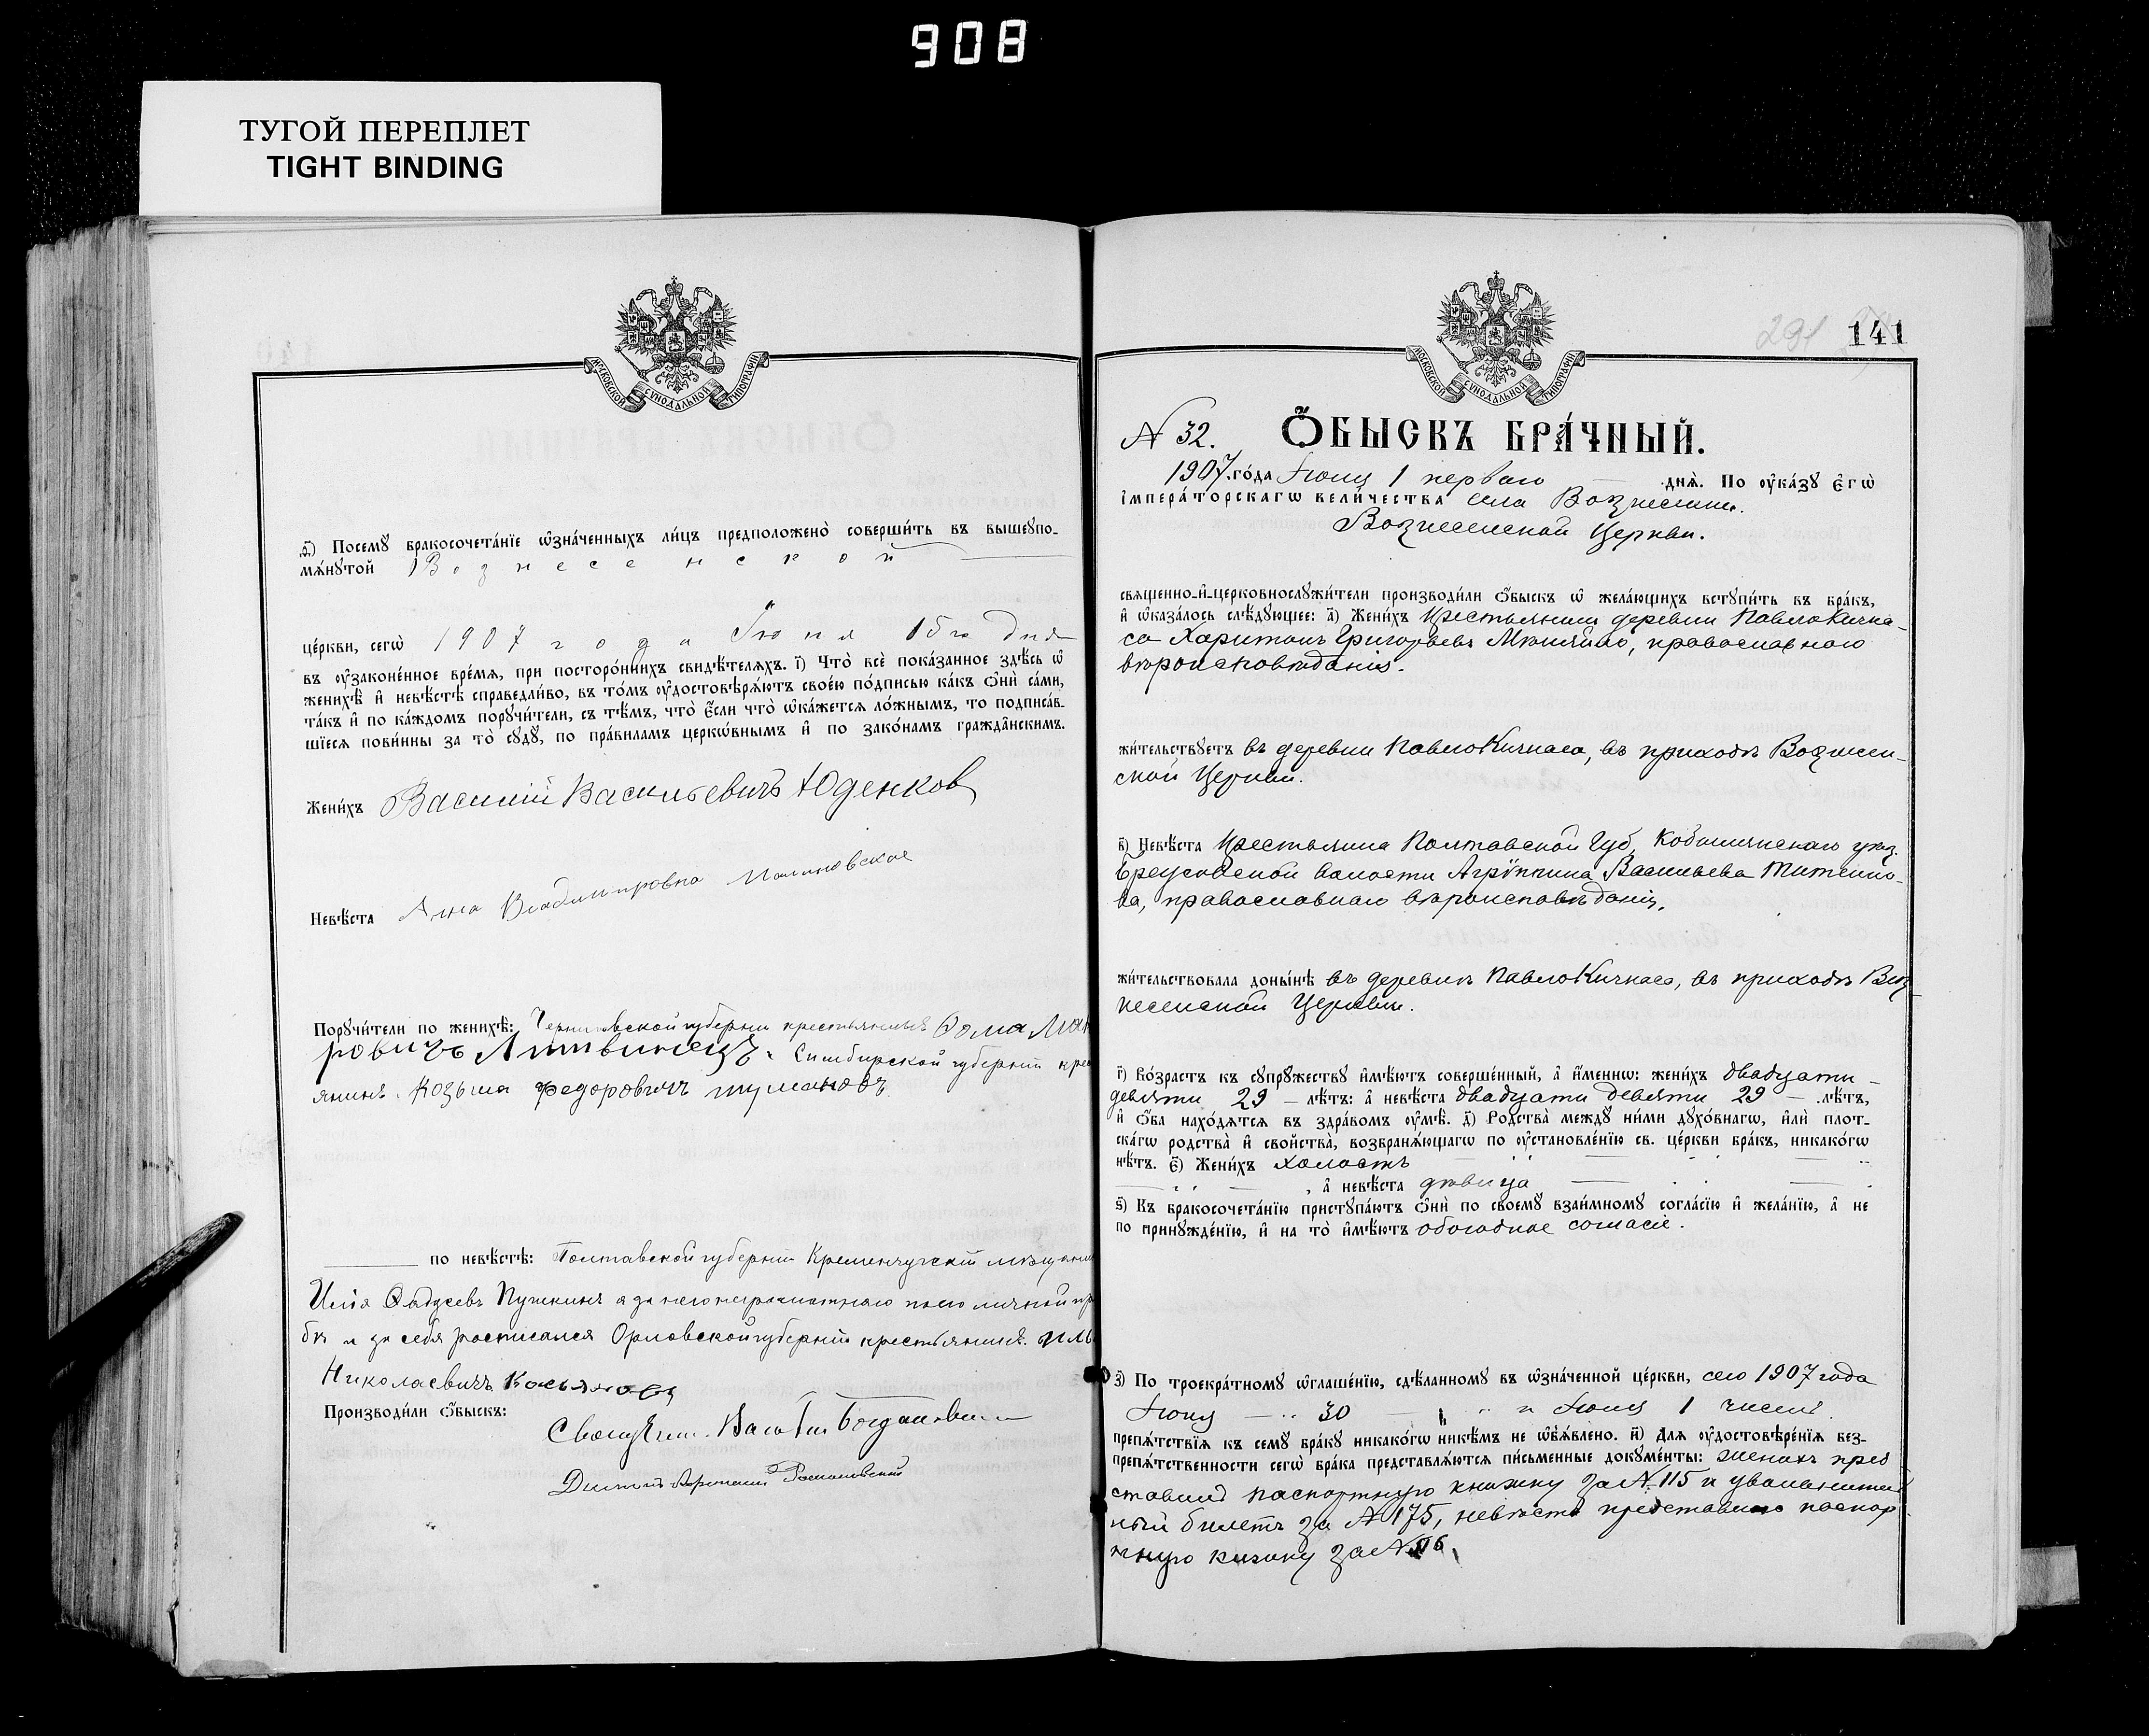 908
ТУГОЙ ПЕРЕПЛЕТ
TIGHT BINDING
МОСКОВСКОЙ СѴНОДАЛЬНОЙ ТИПОГРАФІИ
ѳ҃) Посемꙋ̀ бракосочета́нїе ѡ҆зна́ченныхъ ли́цъ предположено̀ соверши́ть въ вышеꙋпо-
мѧ́нꙋтой Вознесенской
це́ркви, сегѡ̀ 1907 года Іюня 15го дня
въ ᲂу҆законе́нное вре́мѧ, при посторо́ннихъ свидѣ́телѧхъ. і҃) Что̀ всѐ пока́занное здѣ́сь ѡ҆
женихѣ̀ и҆ невѣ́стѣ справедли́во, въ то́мъ ᲂу҆достовѣрѧ́ютъ свое́ю по́дписью ка́къ ѻ҆нѝ са́ми,
та́къ и҆ по ка́ждомъ порꙋчи́тели, съ тѣ́мъ, что̀ є҆́сли что̀ ѡ҆ка́жетсѧ ло́жнымъ, то подписа́в-
шїесѧ пови́нны за то̀ сꙋдꙋ̀, по пра́виламъ церко́внымъ и҆ по зако́намъ гражда́нскимъ.
Жени́хъ Василій Васильевичъ Юденков
Невѣ́ста Анна Владимировна Малиновская
Порꙋчи́тели по женихѣ̀: Черниговской губерни крестьянинъ Фома Мак
ровичъ Литвинецъ. Симбирской губерніи кре
янинъ. Козьма Федоровичъ тумановъ
по невѣ́стѣ: Полтавской губерніи Кременчугскій мѣщанин
Илія Фадѣевъ Пушкинъ а за него неграмотнаго по его личной пр
бѣ и за себя росписался Орловской губерніи крестьянинъ. иль
Николаевичъ Касьяновъ
Производи́ли ѻ҆́быскъ:
Священ.
Романовскій
141
291
N 32. Ѻ҆́БЫСКЪ БРА́ЧНЫЙ.
1907. го́да Іюля 1 перваго днѧ̀. По ᲂу҆ка́зꙋ є҆гѡ̀
и҆мпера́торскагѡ вели́чества села Вознесенки.
Вознесенской Церкви.
свѧщенно-и҆-церковнослꙋжи́тели производи́ли ѻ҆́быскъ ѡ҆ жела́ющихъ встꙋпи́ть въ бра́къ,
и҆ ѡ҆каза́лось слѣ́дꙋющее: а҃) Жени́хъ Крестьянинъ деревни Павло Кичка-
са Харитонъ Григорьевъ, православнаго
вѣроисповѣданія.
жи́тельствꙋетъ въ деревни Павло Кичкаса, въ приходѣ Вознесен-
ской Церкви.
в҃) Невѣ́ста Крестьянка Полтавской Губ, Кобелякскаго уѣз.
волости Агрипина Васильева
ва, православнаго вѣроисповѣданія.
жи́тельствовала доны́нѣ въ деревни Павло Кичкаса, въ приходѣ Воз-
несенской Церкви.
г҃) Во́зрастъ къ сꙋпрꙋ́жествꙋ и҆мѣ́ютъ соверше́нный, а҆ и҆́меннѡ: жени́хъ двадцати-
девяти 29 лѣ́тъ: а҆ невѣ́ста двадцати девяти 29 лѣ́тъ,
и҆ ѻ҆́ба нахо́дѧтсѧ въ здра́вомъ ᲂу҆мѣ̀. д҃) Родства̀ междꙋ̀ ни́ми дꙋхо́внагѡ, и҆лѝ плот-
ска́гѡ родства̀ и҆ сво́йства̀, возбранѧ́ющагѡ по ᲂу҆становле́нїю св. це́ркви бра́къ, никако́гѡ
нѣ́тъ. є҃) Жени́хъ холостъ
, а҆ невѣ́ста дѣвица
ѕ҃) Къ бракосочета́нїю пристꙋпа́ютъ ѻ҆нѝ по своемꙋ̀ взаи́мномꙋ согла́сїю и҆ жела́нїю, а҆ не
по принꙋжде́нїю, и҆ на то̀ и҆мѣ́ютъ обоюдное согласіе.
з҃) По троекра́тномꙋ ѡ҆глаше́нїю, сдѣ́ланномꙋ въ ѡ҆зна́ченной це́ркви, сего 1907 года
30 и Іюля 1 числа
препѧ́тствїѧ къ семꙋ̀ бра́кꙋ никако́гѡ никѣ́мъ не ѡ҆б̾ѧ́влено. и҃) Длѧ ᲂу҆достовѣре́нїѧ без-
препѧ́тственности сегѡ̀ бра́ка представлѧ́ютсѧ пи́сьменные докꙋме́нты: женихъ пред
ставилъ паспортную книжку за N 115 и увольнитель
ный билетъ за N 175, невѣста представила паспор
тную книжку за N 116.